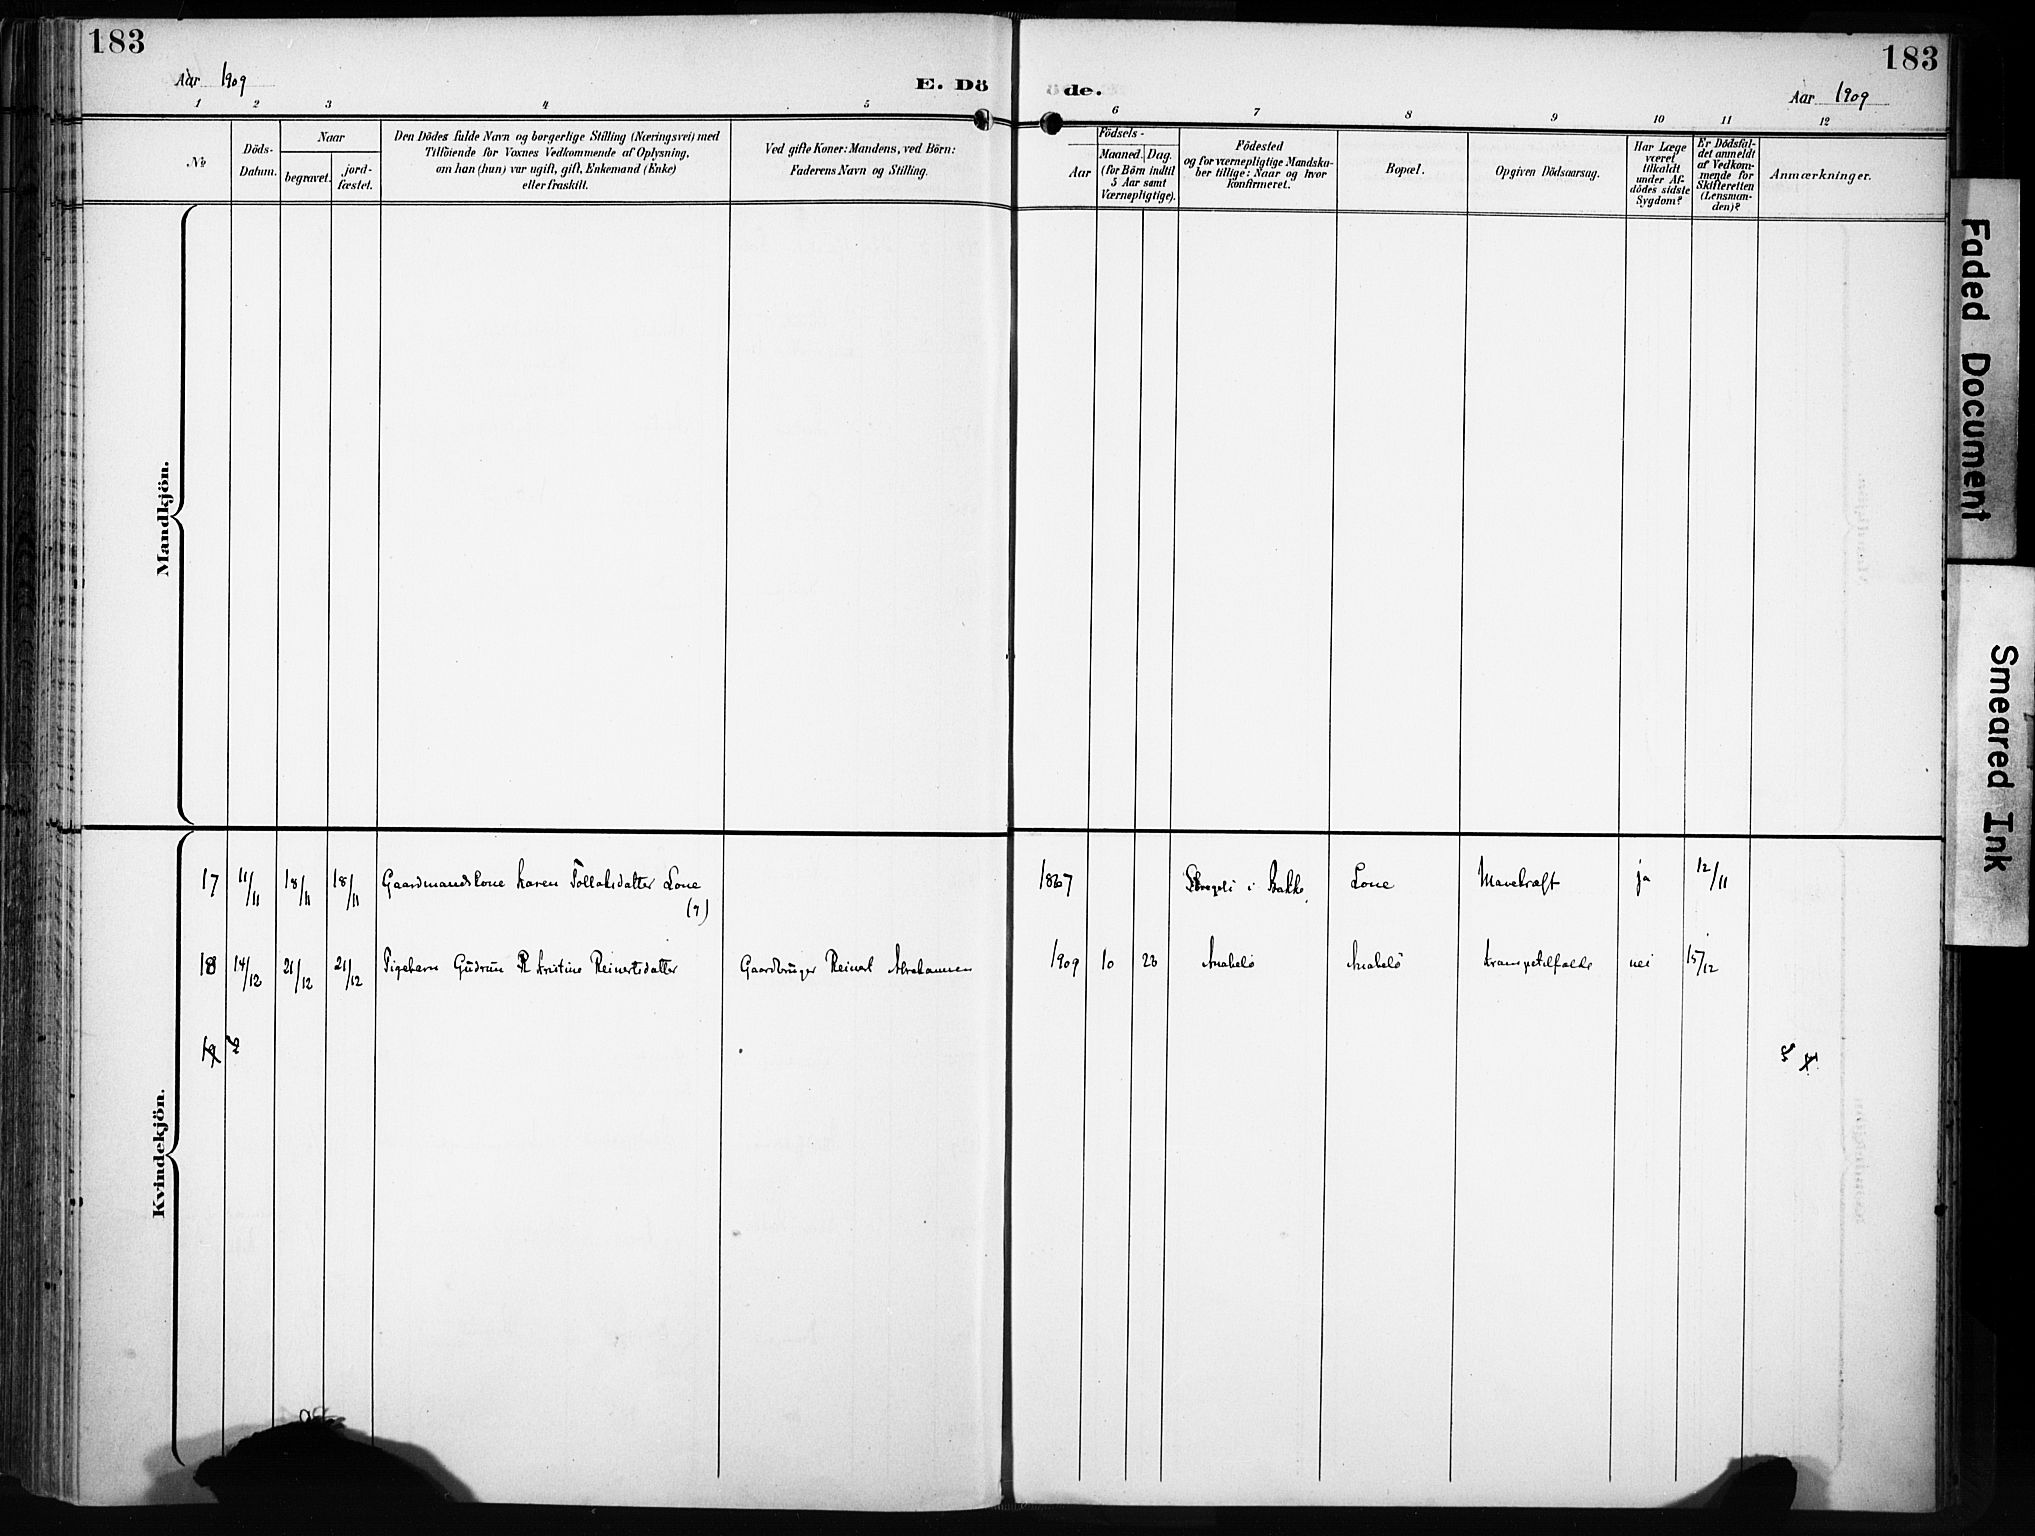 183
Aar 1909
E. Dö
1 2 3 4 5
No
Döds-
Datum.
Naar
begravet.
jord-
fæstet.
Den Dödes fulde Navn og borgerlige Stilling (Næringsvei) med
Tilföiende for Voxnes Vedkommende af Oplysning,
om han (hun) var ugift, gift, Enkemand (Enke)
eller fraskilt.
Ved gifte Koner: Mandens, ved Börn:
Faderens Navn og Stilling.
Mandkjön.
17 11/11 18/11 18/11 Gaardmandskone Karen Tollaksdatter Lone
18 14/12 21/12 21/12 Pigebarn Gudrun Kristine Reinertsdatter Gaardbruger Reinert Abrahamsen
19
Kvindekjön.
öde.
183
Aar 1909
6 7 8 9 10 11 12
Födsels-
Aar
Maaned. Dag.
(for Börn indtil
5 Aar samt
Værnepligtige).
Födested
og for værnepligtige Mandska-
ber tillige: Naar og hvor
konfirmeret.
Bopæl.
Opgiven Dödsaarsag.
Har Læge
været
tilkaldt
under Af-
dödes sidste
Sygdom?
Er Dödsfal-
det anmeldt
af Vedkom-
mende for
Skifteretten
(Lensman-
den)?
Anmærkninger.
1867 i Bakke Lone Mavekræft ja 12/11
1909 10 23 Anabelö Anabelö Krampetilfælde nei 15/12
Faded Document
Smeared Ink